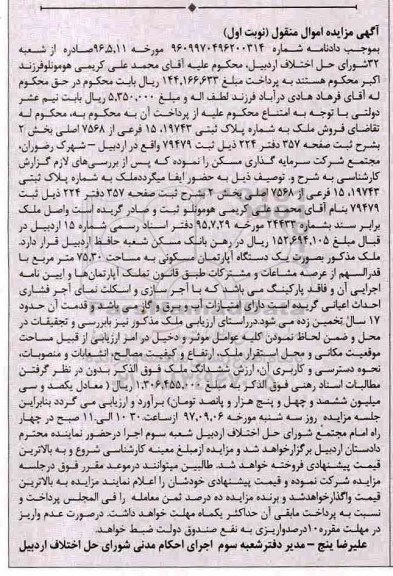 آگهی مزایده اموال منقول (نوبت اول)
بموجب دادنامه شماره ۹۶۰۹۹۷۰۴۹۶۲۰۰۳۱۴ مورخه ۹۶،۵،۱۱صادره از شعبه
۳۲شورای حل اختلاف اردبیل، محکوم علیه آقای محمد علی کریمی هومونلوفرزند
اکبر محکوم هستند به پرداخت مبلغ ۱۴۴،۱۶۶،۶۳۳ ریال بابت محکوم در حق محکوم
له آقای فرهاد هادی درآباد فرزند لطف اله و مبلغ ۵،۳۵۰،۰۰۰ ریال بابت نیم عشر
دولتی با توجه به امتناع محکوم علیه از پرداخت آن به محکوم به، محکوم له
تقاضای فروش ملک به شماره پلاک ثبتی ۱۹۷۴۳، ۱۵ فرعی از ۷۵۶۸ اصلی بخش ۲
بشرح ثبت صفحه ۳۵۷ دفتر ۲۲۴ ذیل ثبت ۷۹۴۷۹ واقع در اردبیل – شهرک رضوران،
مجتمع شرکت سرمایه گذاری مسکن را نموده که پس از بررسی‌های لازم گزارش
کارشناسی به شرح و. توصیف ذیل به حضور ایفا میگرددملک به شماره پلاک ثبتی
۱۹۷۴۳، ۱۵ فرعی از ۷۵۶۸ اصلی بخش ۲ بشرح ثبت صفحه ۳۵۷ دفتر ۲۲۴ ذیل ثبت
۷۹۴۷۹ بنام آقای محمد علی کریمی هومونلو ثبت و صادر گردیده است واصل ملک
برابر سند بشماره ۲۴۴۳۳ مورخه ۹۵،۷،۲۹ دفتر اسناد رسمی شماره ۱۵ اردبیل در
قبال مبلغ ۱۵۲،۶۹۴،۱۰۵ ریال در رهن بانک مسکن شعبه حافظ اردبیل قرار دارد.
ملک مذکور بصورت یک دستگاه آپارتمان مسکونی به مساحت ۷۵،۳۰ متر مربع با
قدرالسهم از عرصه مشاعات و مشترکات طبق قانون تملک آپارتمان‌ها و ایین نامه
اجرایی آن و فاقد پارکینگ می باشد که با آجر سازی و اسکلت نمای آجر فشاری
احداث اعیانی گریده است دارای امتیازات آب و برق و گاز می باشد و قدمت آن حدود
۱۷ سال تخمین زده می شود.درراستای ارزیابی ملک مذکور نیز بابررسی و تحقیقات در
محل و ضمن لحاظ نمودن کلیه عوامل موثر و دخیل در امر ارزیابی از قبیل مساحت
موقعیت مکانی و محل استقرار ملک، ارتفاع و کیفیت مصالح، انشعابات و منصوبات،
نحوه دسترسی و کاربری آن، ارزش ششدانگ ملک فوق الذکر بدون در نظر گرفتن
مطالبات اسناد رهنی فوق الذکر به مبلغ ۱،۳۰۶،۴۵۵،۰۰۰ ریال ( معادل یکصد و سی
میلیون ششصد و چهل و پنج هزار و پانصد تومان) براورد و ارزیابی می گردد بنابراین
جلسه مزایده روز سه شنبه مورخه ۹۷،۰۹،۰۶ ازساعت ۱۰:۳۰ الی ۱۱ صبح در چهار
راه امام مجتمع شورای حل اختلاف اردبیل شعبه سوم اجرا درحضور نماینده محترم
دادستان اردبیل برگزارخواهد شد و مزایده ازمبلغ معینه کارشناسی شروع و به بالاترین
قیمت پیشنهادی فروخته خواهد شد. طالبین میتوانند درموعد مقرر فوق درجلسه
مزایده شرکت نموده و قیمت پیشنهادی خودشان را اعلام نمایند مزایده به بالاترین
قیمت واگذارخواهدشد و برنده مزایده ده درصد ثمن معامله را فی المجلس پرداخت و
نسبت به پرداخت مابقی آن حداکثر یکماه مهلت خواهد داشت. درصورت عدم واریز
در مهلت مقرره۱۰درصدواریزی به نفع صندوق دولت ضبط خواهد.
علیرضا پنج – مدیر دفترشعبه سوم اجرای احکام مدنی شورای حل اختلاف اردبیل